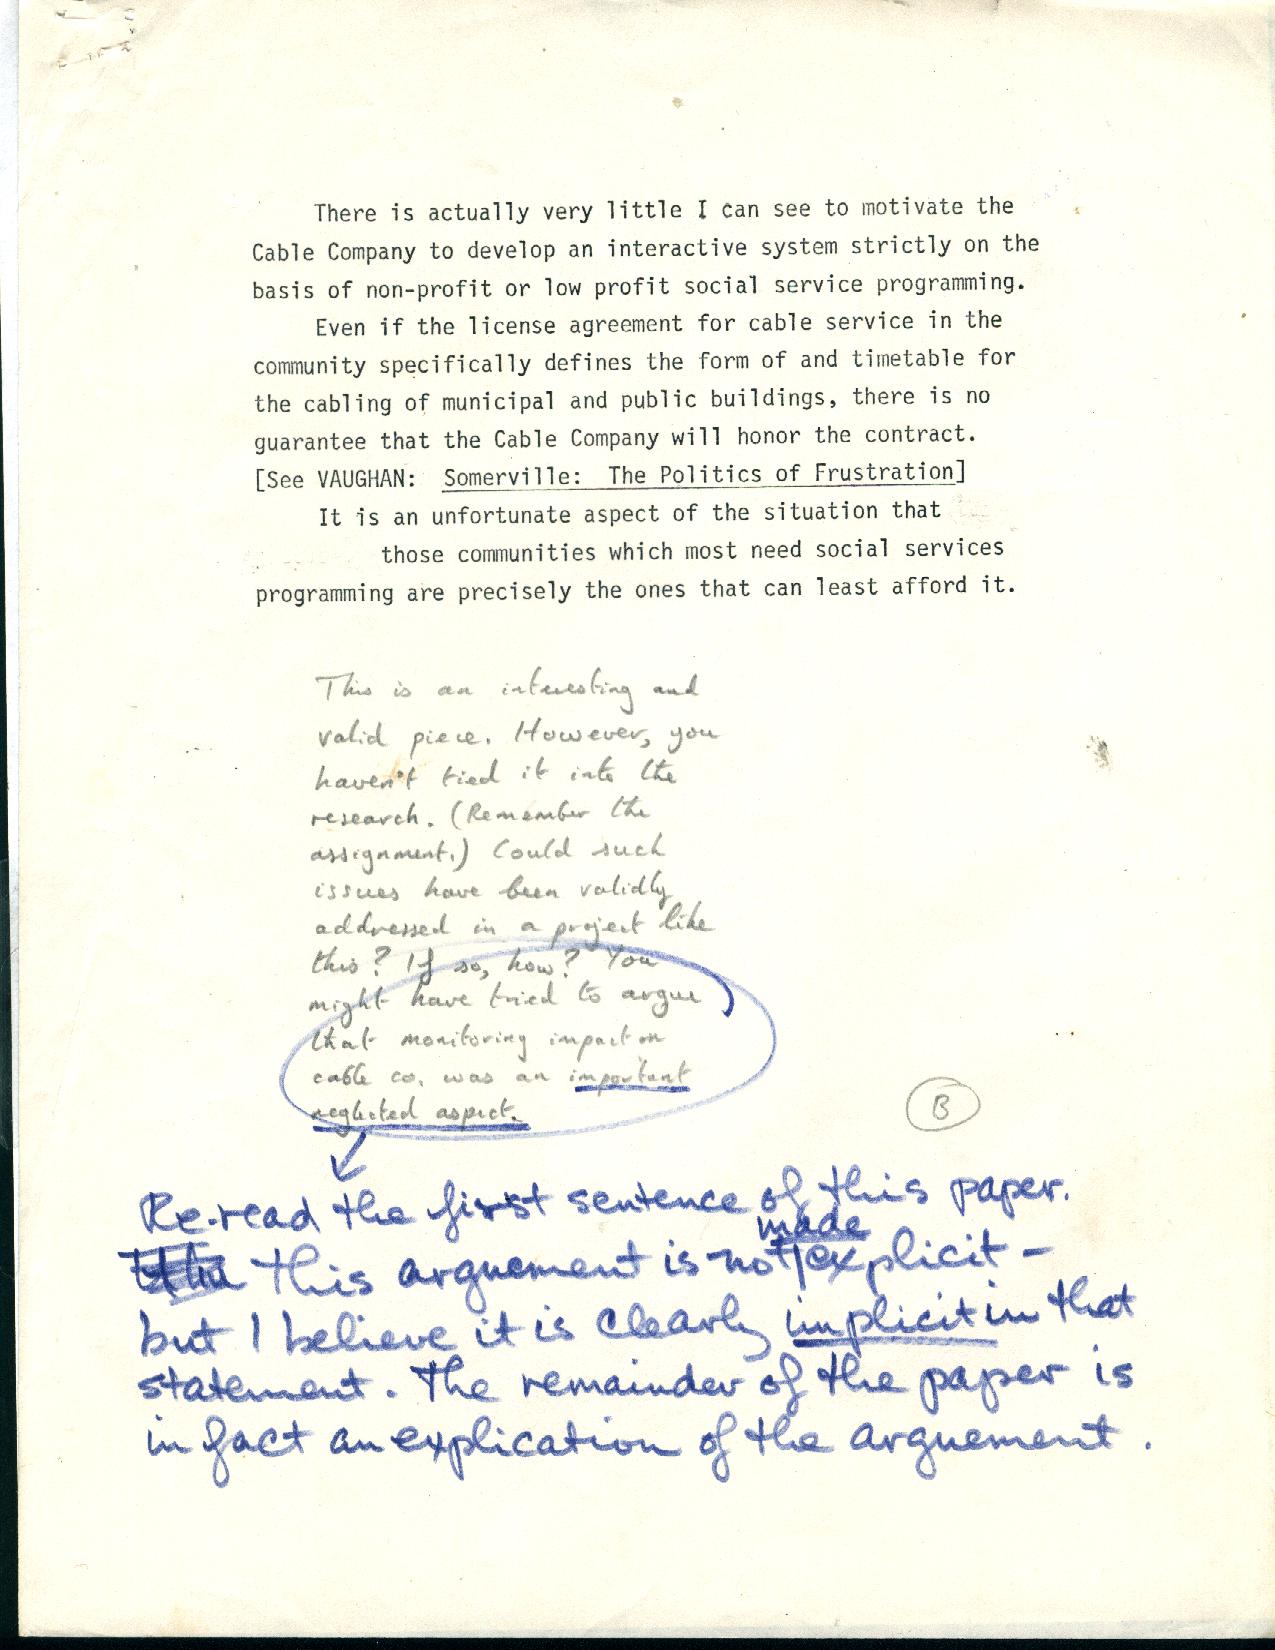 There is actually very little I can see to motivate the
Cable Company to develop an interactive system strictly on the
basis of non-profit or low profit social service programming.
Even if the license agreement for cable service in the
community specifically defines the form of and timetable for
the cabling of municipal and public buildings, there is no
guarantee that the Cable Company will honor the contract.
[See VAUGHAN: Somerville: The Politics of Frustration]
It is an unfortunate aspect of the situation that
those communities which most need social services
programming are precisely the ones that can least afford it.
This is an interesting and
valid piece. However, you
haven't tied it into the
research. (Remember the
assignment.) Could such
issues have been validly
addressed in a project like
this? If so, how? You
might have tried to argue
that monitoring impact on
cable co. was an important
neglected aspect.
B
Re-read the first sentence of this paper.
made
this arguement is not explicit -
but I believe it is clearly implicit in that
statement. The remainder of the paper is
in fact an explication of the arguement.